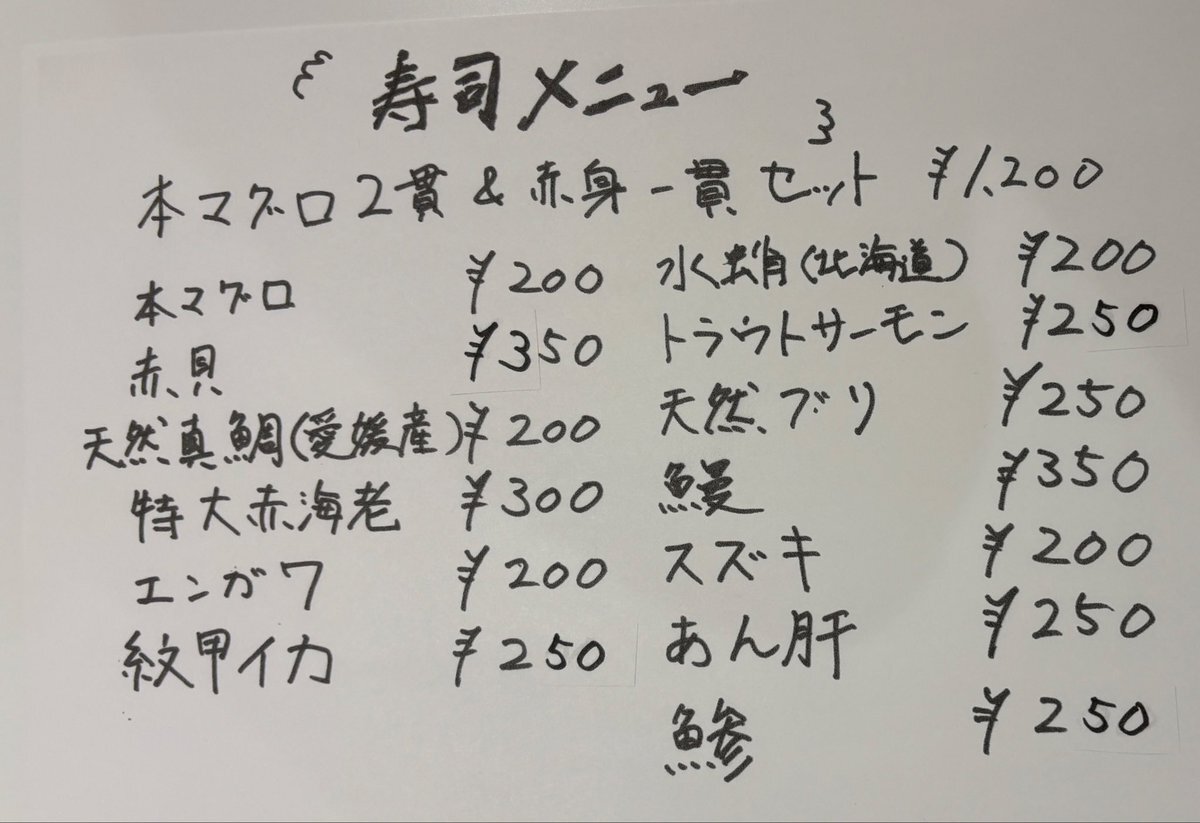 寿司メニュー
本マグロ2貫&赤身一貫セット ¥1,200
本マグロ ¥200
赤貝 ¥350
天然真鯛(愛媛産) ¥200
特大赤海老 ¥300
エンガワ ¥200
紋甲イカ ¥250
水蛸(北海道) ¥200
トラウトサーモン ¥250
天然ブリ ¥250
鰻 ¥350
スズキ ¥200
あん肝 ¥250
鯵 ¥250